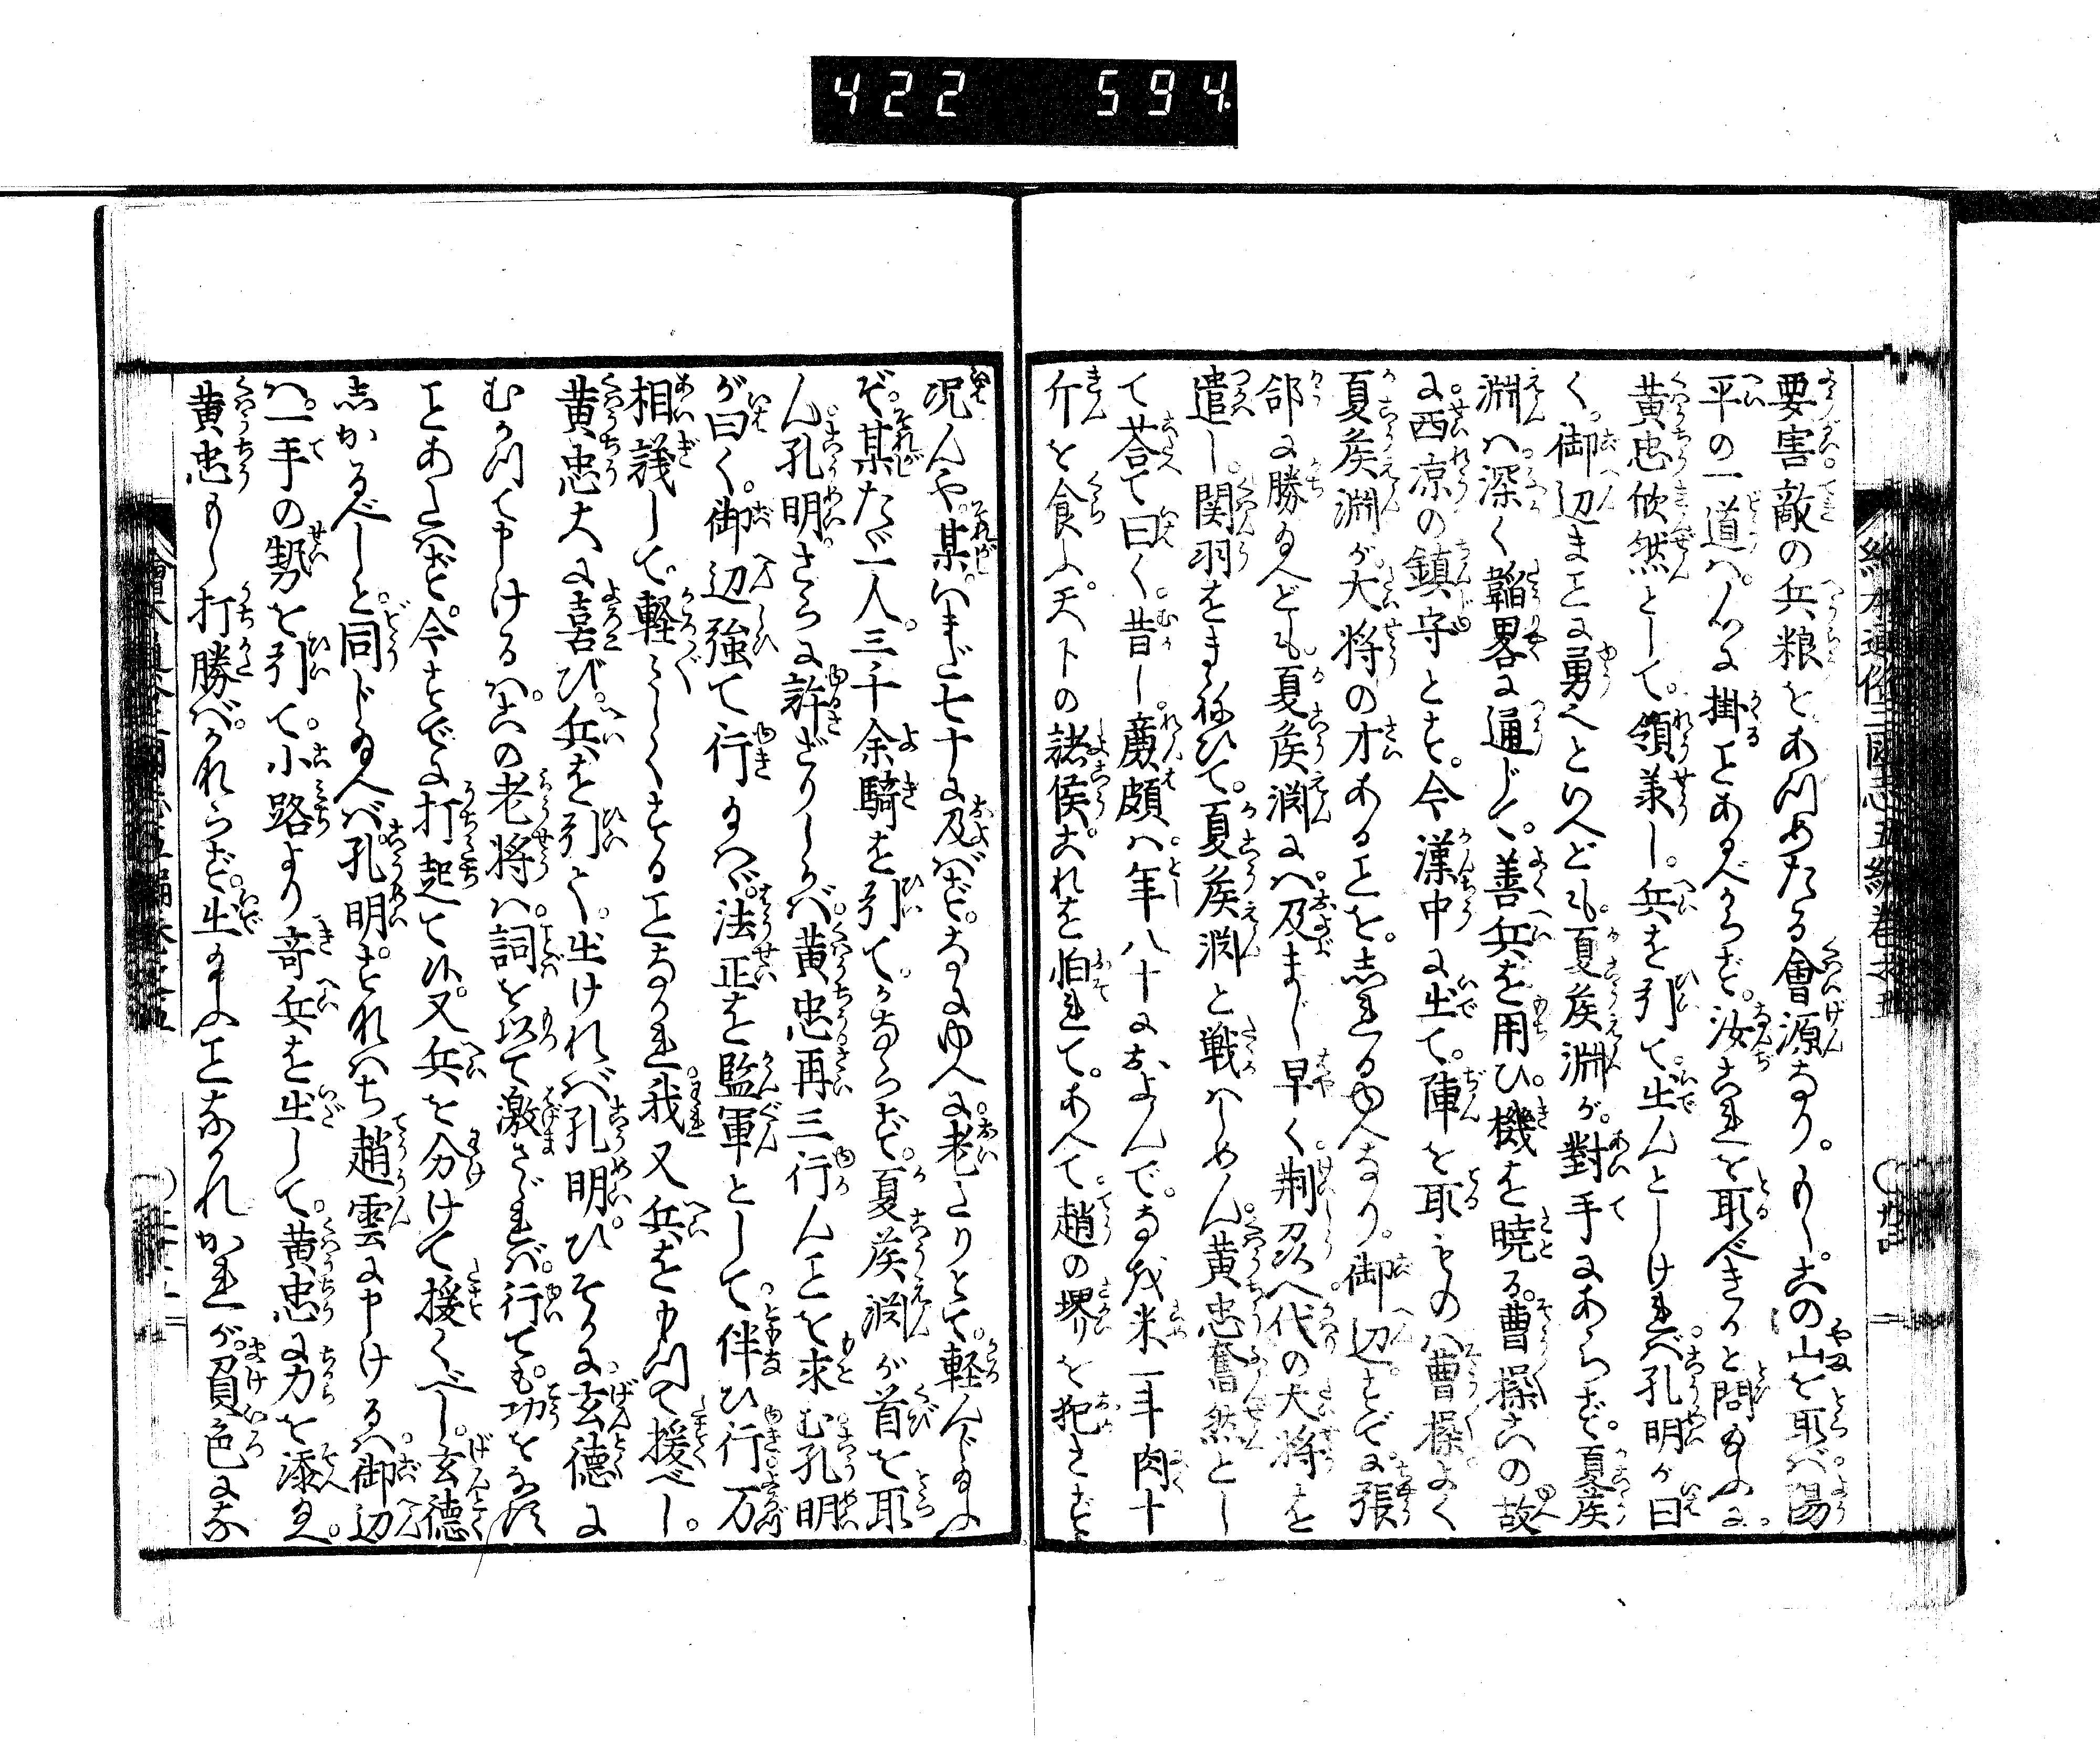 422 594
要害敵の兵粮をあつめたる會源なり。もしこの山を取バ陽
平の一道ハ心に掛ことあるべからず汝これを取べきかと問給ふに
黄忠欣然として領羕し兵を引て出んとしけれバ孔明が曰
く御辺まことに勇へといへども夏侯淵が對手にあらず夏侯
淵ハ深く韜畧に通じて善兵を用ひ機を暁る曹操この故
に西凉の鎮守とす今漢中に出て陣を取ものハ曹操よく
夏侯淵が大将の才あることを志れるゆへなり御辺すでに張
郃に勝給へども夏侯淵にハ及まじ早く荆刕へ代の大将を
遣し関羽をまねひて夏侯淵と戦ハしめん黄忠奮然とし
て荅て曰く昔し廉頗ハ年八十におよんでなを米一斗肉十
斤を食ふ天下の諸侯これを怕れてあへて趙の堺を犯さず
况んや某いまだ七十に及ばずなにゆへに老たりとて軽んじ給ふ
ぞ某たゞ一人三千余騎を引てかならず夏侯淵が首を取
ん孔明さらに許ざりしかバ黄忠再三行んことを求む孔明
が曰く御辺強て行給ハゞ法正を監軍として伴ひ行万
相議して軽〳〵しくすることなかれ我又兵を出て援べし
黄忠大に喜び兵を引て出けれバ孔明ひそかに玄德に
むかつて申けるハこの老将ハ詞を以て激ざれバ行ても功をなさ
ことあたハず今すでに打起て候又兵を分けて援くべし玄德
志かるべしと同じ給へバ孔明すなハち趙雲に申けるハ御辺
ハ一手の勢を引て小路より奇兵を出して黄忠に力を添へ
黄忠もし打勝べくハ出給ふことなかれかれが負色にな